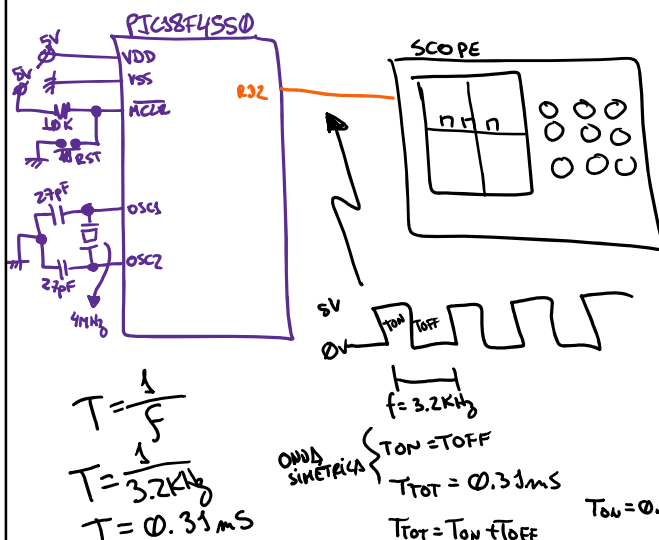 PIC18F4550
5V
VDD
5V
VSS
MCLR
10K
RST
RD2
SCOPE
27pF
OSC1
OSC2
27pF
4MHz
5V
TON TOFF
0V
f=3.2KHz
T=1/f
T=1/3.2KHz
T=0.31mS
ONDA SIMETRICA
TON=TOFF
TTOT=0.31mS
TTOT=TON+TOFF
TON=0.